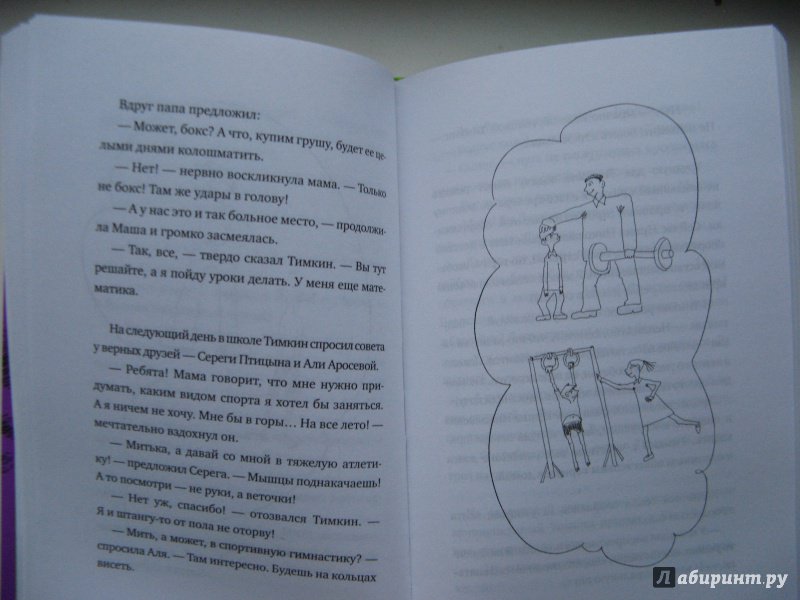 Вдруг папа предложил:
— Может, бокс? А что, купим грушу, будет ее це-
лыми днями колошматить.
— Нет! — нервно воскликнула мама. — Только
не бокс! Там же удары в голову!
— А у нас это и так больное место, — продолжи-
ла Маша и громко засмеялась.
— Так, все, — твердо сказал Тимкин. — Вы тут
решайте, а я пойду уроки делать. У меня еще мате-
матика.
На следующий день в школе Тимкин спросил совета
у верных друзей — Сереги Птицына и Али Аросевой.
— Ребята! Мама говорит, что мне нужно при-
думать, каким видом спорта я хотел бы заняться.
А я ничем не хочу. Мне бы в горы... На все лето! —
мечтательно вздохнул он.
— Митька, а давай со мной в тяжелую атлети-
ку! — предложил Серега. — Мышцы поднакачаешь!
А то посмотри — не руки, а веточки!
— Нет уж, спасибо! — отозвался Тимкин. —
Я и штангу-то от пола не оторву!
— Мить, а может, в спортивную гимнастику? —
спросила Аля. — Там интересно. Будешь на кольцах
висеть.
Лабиринт.ру